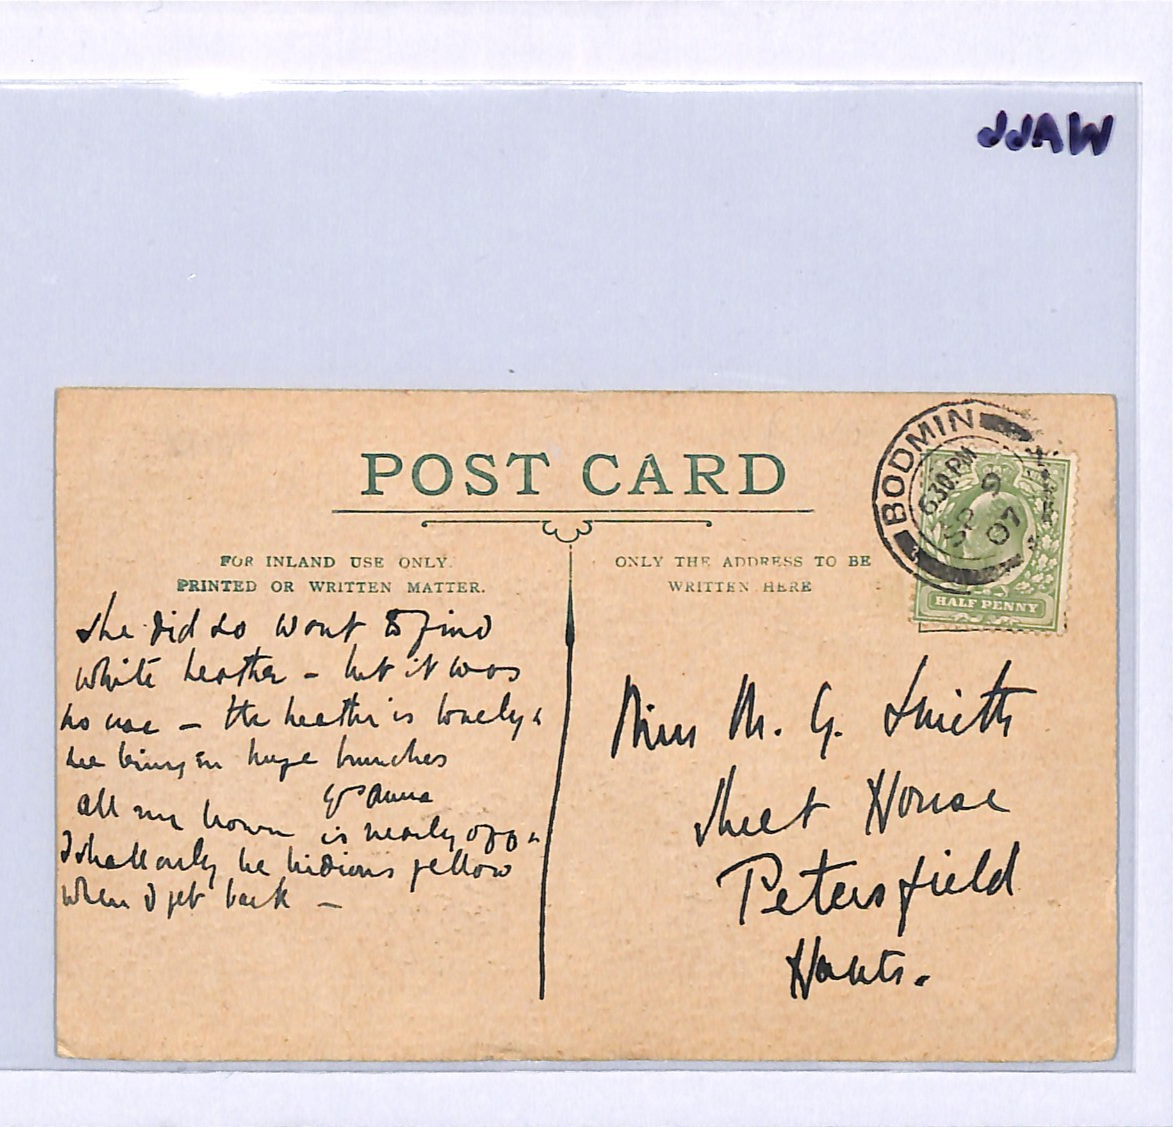 JJAW
POST CARD
FOR INLAND USE ONLY.
PRINTED OR WRITTEN MATTER.
ONLY THE ADDRESS TO BE
WRITTEN HERE
BODMIN
6.30.PM
SP 9
07
HALF PENNY
She did so want to find
white heather – but it was
no use – the heather is lovely &
we bring in huge bunches
Yrs Anna
all my brown is nearly off &
I shall only be hideous yellow
when I get back –
Miss M. G. Smith
Sheet House
Petersfield
Hants.